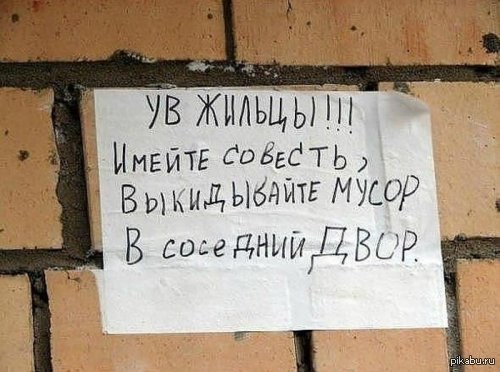 УВ ЖИЛЬЦЫ!!!
ИМЕЙТЕ СОВЕСТЬ,
ВЫКИДЫВАЙТЕ МУСОР
В СОСЕДНИЙ ДВОР.
pikabu.ru